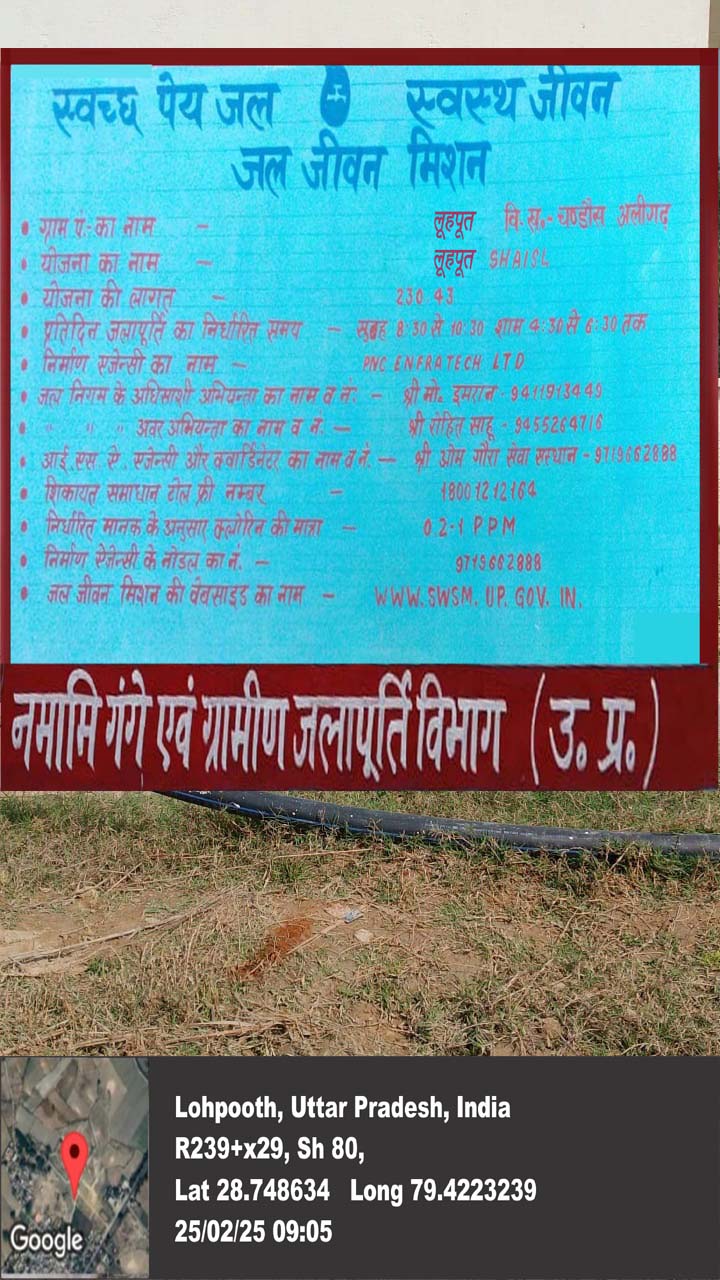 स्वच्छ पेय जल स्वस्थ जीवन
जल जीवन मिशन
• ग्राम पं.- का नाम - लूहपूत वि. ख.- चण्डौस अलीगढ़
• योजना का नाम - लूहपूत SHAISL
• योजना की लागत - 230.43
• प्रतिदिन जलापूर्ति का निर्धारित समय - सुबह 8:30 से 10:30 शाम 4:30 से 6:30 तक
• निर्माण एजेन्सी का नाम - PNC ENFRATECH LTD
• जल निगम के अधिसाशी अभियन्ता का नाम व नं.- - श्री मो. इमरान - 9411913449
• " " " अवर अभियन्ता का नाम व नं. - श्री रोहित साहू - 9455264716
• आई. एस. ए. एजेन्सी और क्वार्डिनेटर का नाम व नं. - श्री ओम गौरा सेवा संस्थान - 9719662888
• शिकायत समाधान टोल फ्री नम्बर - 18001212164
• निर्धारित मानक के अनुसार क्लोरिन की मात्रा - 0.2-1 PPM
• निर्माण ऐजेन्सी के नोडल का नं. - 9719662888
• जल जीवन मिशन की वेबसाइड का नाम - WWW.SWSM.UP.GOV.IN.
नमामि गंगे एवं ग्रामीण जलापूर्ति विभाग (उ. प्र.)
Lohpooth, Uttar Pradesh, India
R239+x29, Sh 80,
Lat 28.748634 Long 79.4223239
25/02/25 09:05
Google